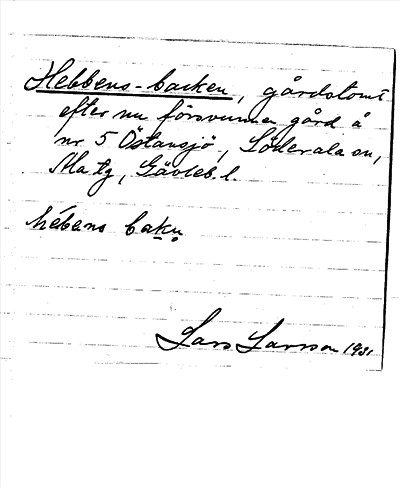 Hebbens-backen, gårdstomt
efter nu försvunnen gård å
nr 5 Östansjö, Söderala sn,
Ala tg, Gävleb. l.
hébens bakn
Lars Larsson 1931